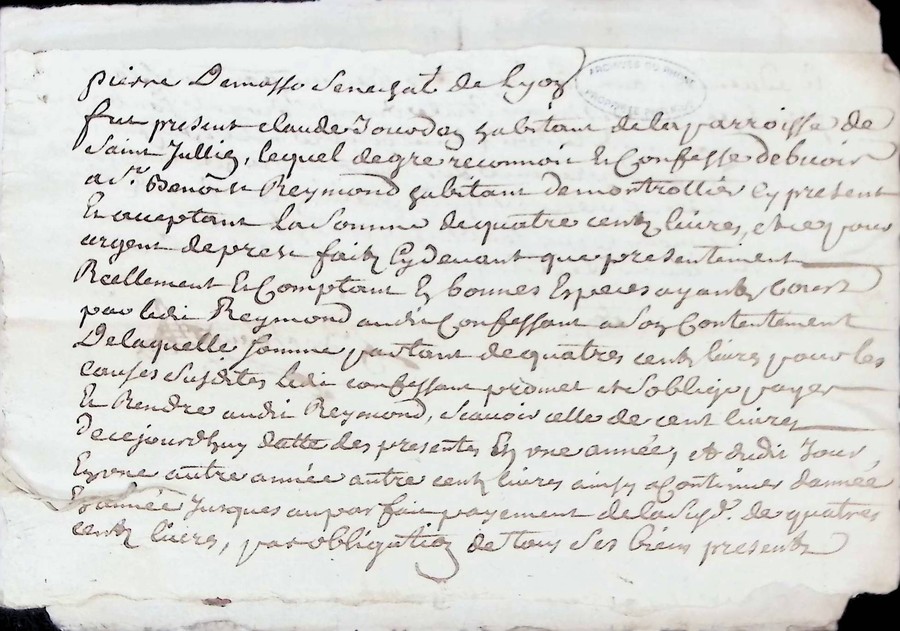 pierre Demasso Senechal de Lyon
ARCHIVES DU RHONE
fut present claude Jourdan habitant de la parroisse de
Saint Jullien, lequel de gre reconnoit Et Confesse debvoir
a Sr. Benoist Reymond habitant de montrottier Cy present
Et acceptant la Somme de quatre centz livres, et ce pour
argent de prest faitz Cy devant que presentement
Reellement Et Comptant En bonnes Especes ayantz Cours
par ledit Reymond audit Confessant a Son Contentement
De laquelle Somme partant de quatres centz livres pour les
causes Susdites ledit confessant promet et S'oblige payer
Et Rendre audit Reymond, Scavoir celle de cent livres
De cejourdhuy datte des presentes En une année, et dudit Jour
En une autre année autre centz livres ainsy a Continuer d'année
En année Jusques au parfait payement de la Susd. de quatres
centz livres, par obligation de tous Ses biens presentz